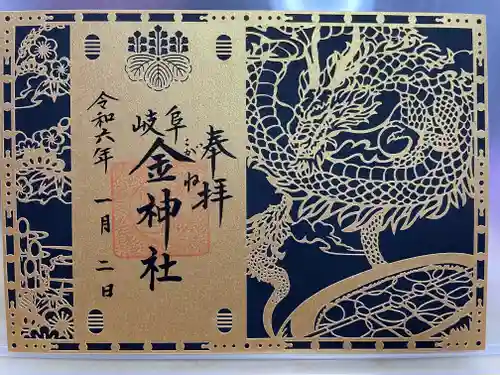 奉拝
岐阜
金神社
こがね
令和六年
一月二日